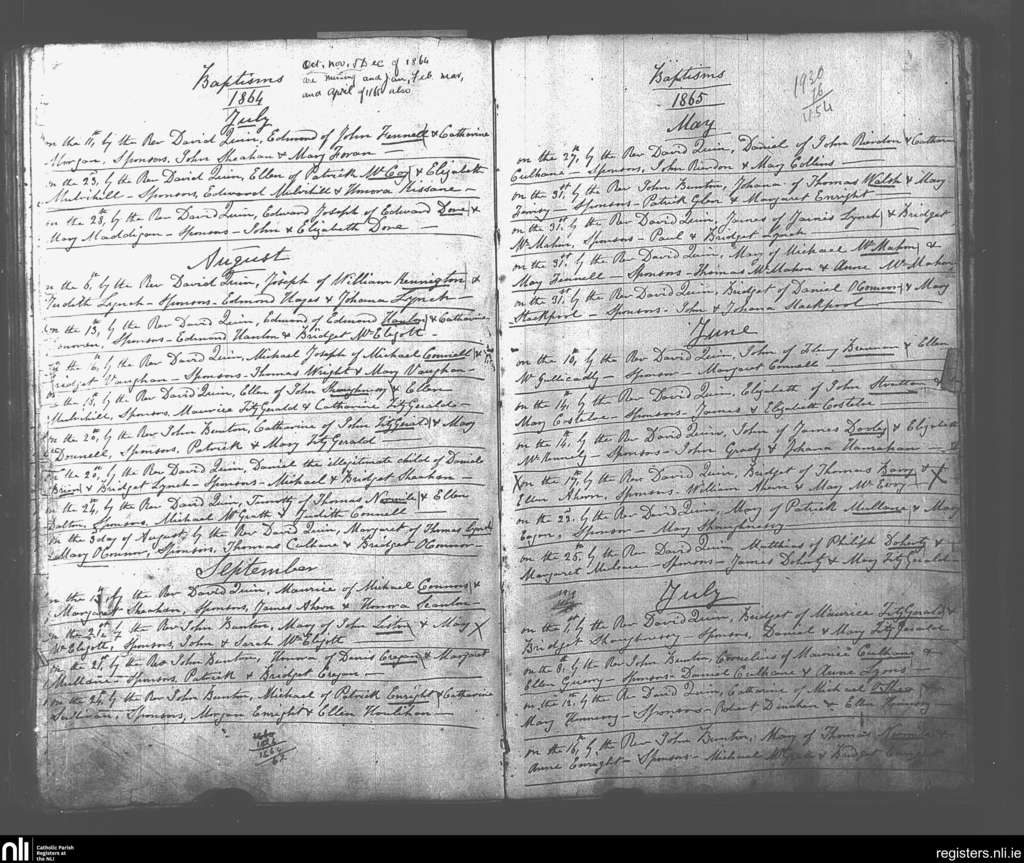 Baptisms
1864
Oct, Nov, & Dec of 1864
are missing and Jan, Feb, Mar,
and April of 1865 also
July
on the 11th, by the Rev David Quin, Edmond of John Fennell & Catherine
Morgan, Sponsors, John Sheahan & Mary Foran
on the 23, by the Rev David Quin, Ellen of Patrick McCoy & Elizabeth
Mulvihill - Sponsors, Edward Mulvihill & Honora Kissane
on the 28, by the Rev David Quin, Edward Joseph of Edward Dore &
Mary Maddigan - Sponsors - John & Elizabeth Dore
August
on the 6th, by the Rev David Quin, Joseph of William Kennington &
Judith Lynch - Sponsors - Edmond Hayes & Johana Lynch
on the 13, by the Rev David Quin, Edmond of Edmond Hanlon & Catherine
Sponsors - Edmond Hanlon & Bridget McEligott
the 6, by the Rev David Quin, Michael Joseph of Michael Connell &
Bridget Vaughan - Sponsors - Thomas Wright & Mary Vaughan
on the 18, by the Rev David Quin, Ellen of John Shaughnessy & Ellen
Mulvihill, Sponsors, Maurice FitzGerald & Catherine FitzGerald
on the 20th, by the Rev John Bunton, Catherine of John FitzGerald & Mary
Sponsors, Patrick & Mary FitzGerald
the 20th, by the Rev David Quin, Daniel the illegitimate child of Daniel
Brien & Bridget Lynch - Sponsors - Michael & Bridget Sheahan
on the 24, by the Rev David Quin, Timothy of Thomas & Ellen
Dalton, Sponsors, Michael McGrath & Judith Connell
on the 3 day of August, by the Rev David Quin, Margaret of Thomas Lynch
& Mary OConnor, Sponsors, Thomas Culhane & Bridget OConnor
September
on the by the Rev David Quin, Maurice of Michael Connors &
Margaret Sheahan, Sponsors, James Ahern & Honora Scanlon
on the 21st by the Rev John Bunton, Mary of John Liston & Mary X
McEligott, Sponsors, John & Sarah McEligott
on the 21, by the Rev John Bunton, Honora of Denis Cregan & Margaret
Mullane - Sponsors, Patrick & Bridget Cregan
on the 24, by the Rev John Bunton, Michael of Patrick Enright & Catherine
Sullivan, Sponsors, Morgan Enright & Ellen Houlihan
Baptisms
1865
1930
76
1154
May
on the 27, by the Rev David Quin, Daniel of John Riordon & Catherine
Culhane - Sponsors, John Riordon & Mary Collins
on the 31st by the Rev John Bunton, Johana of Thomas Walsh & Mary
Sponsors - Patrick & Margaret Enright
on the 31, by the Rev David Quin, James of James Lynch & Bridget
McMahon, Sponsors - Paul & Bridget Lynch
on the 31st by the Rev David Quin, Mary of Michael McMahon &
Mary Fennell - Sponsors - Thomas McMahon & Anne McMahon
on the 31, by the Rev David Quin, Bridget of Daniel OConnor & Mary
Stackpool - Sponsors - John & Johana Stackpool
June
on the 10, by the Rev David Quin, John of Brennan & Ellen
McGillicuddy - Sponsor - Margaret Connell
on the 14, by the Rev David Quin, Elizabeth of John &
Mary Costeloe - Sponsors - James & Elizabeth Costelloe
on the 14, by the Rev David Quin, John of James Dooley & Elizabeth
Sponsors - John Grady & Johana Hanrahan
X on the 17, by the Rev David Quin, Bridget of Thomas Barry & X
Ellen Ahern, Sponsors - William Ahern & Mary McEvoy
on the 23, by the Rev David Quin, Mary of Patrick Mullane & Mary
Sponsor - Mary Shaughnessy
on the 25, by the Rev David Quin, Matthias of Philip Doherty &
Margaret - Sponsors - James Doherty & Mary FitzGerald
July
on the 1st, by the Rev David Quin, Bridget of Maurice FitzGerald &
Bridget Shaughnessy - Sponsors, Daniel & Mary FitzGerald
on the 8, by the Rev John Bunton, Cornelius of Maurice Culhane &
Ellen - Sponsors - Daniel Culhane & Anne Lyons
on the 12, by the Rev David Quin, Catherine of Michael &
Mary Hennessy - Sponsors - Robert & Ellen Hennessy
on the 16, by the Rev John Bunton, Mary of Thomas &
Anne Enright - Sponsors - Michael & Bridget Enright
nli
Catholic Parish
Registers at
the NLI
registers.nli.ie